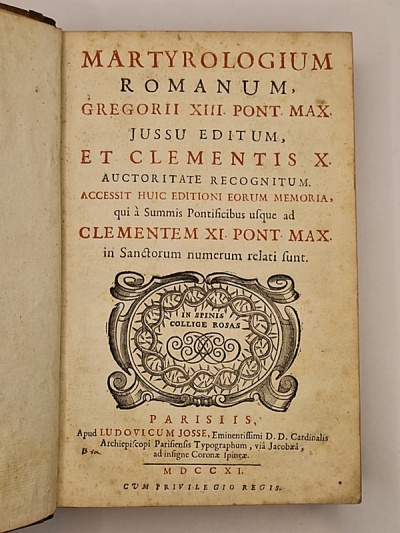 MARTYROLOGIUM
ROMANUM,
GREGORII XIII. PONT. MAX.
JUSSU EDITUM,
ET CLEMENTIS X.
AUCTORITATE RECOGNITUM.
ACCESSIT HUIC EDITIONI EORUM MEMORIA,
qui à Summis Pontificibus uſque ad
CLEMENTEM XI. PONT. MAX.
in Sanctorum numerum relati ſunt.
IN SPINIS
COLLIGE ROSAS
PARISIIS,
Apud LUDOVICUM JOSSE, Eminentiſſimi D. D. Cardinalis
Archiepiſcopi Pariſienſis Typographum, viâ Jacobæâ,
ad inſigne Coronæ ſpineæ.
MDCCXI.
CUM PRIVILEGIO REGIS.